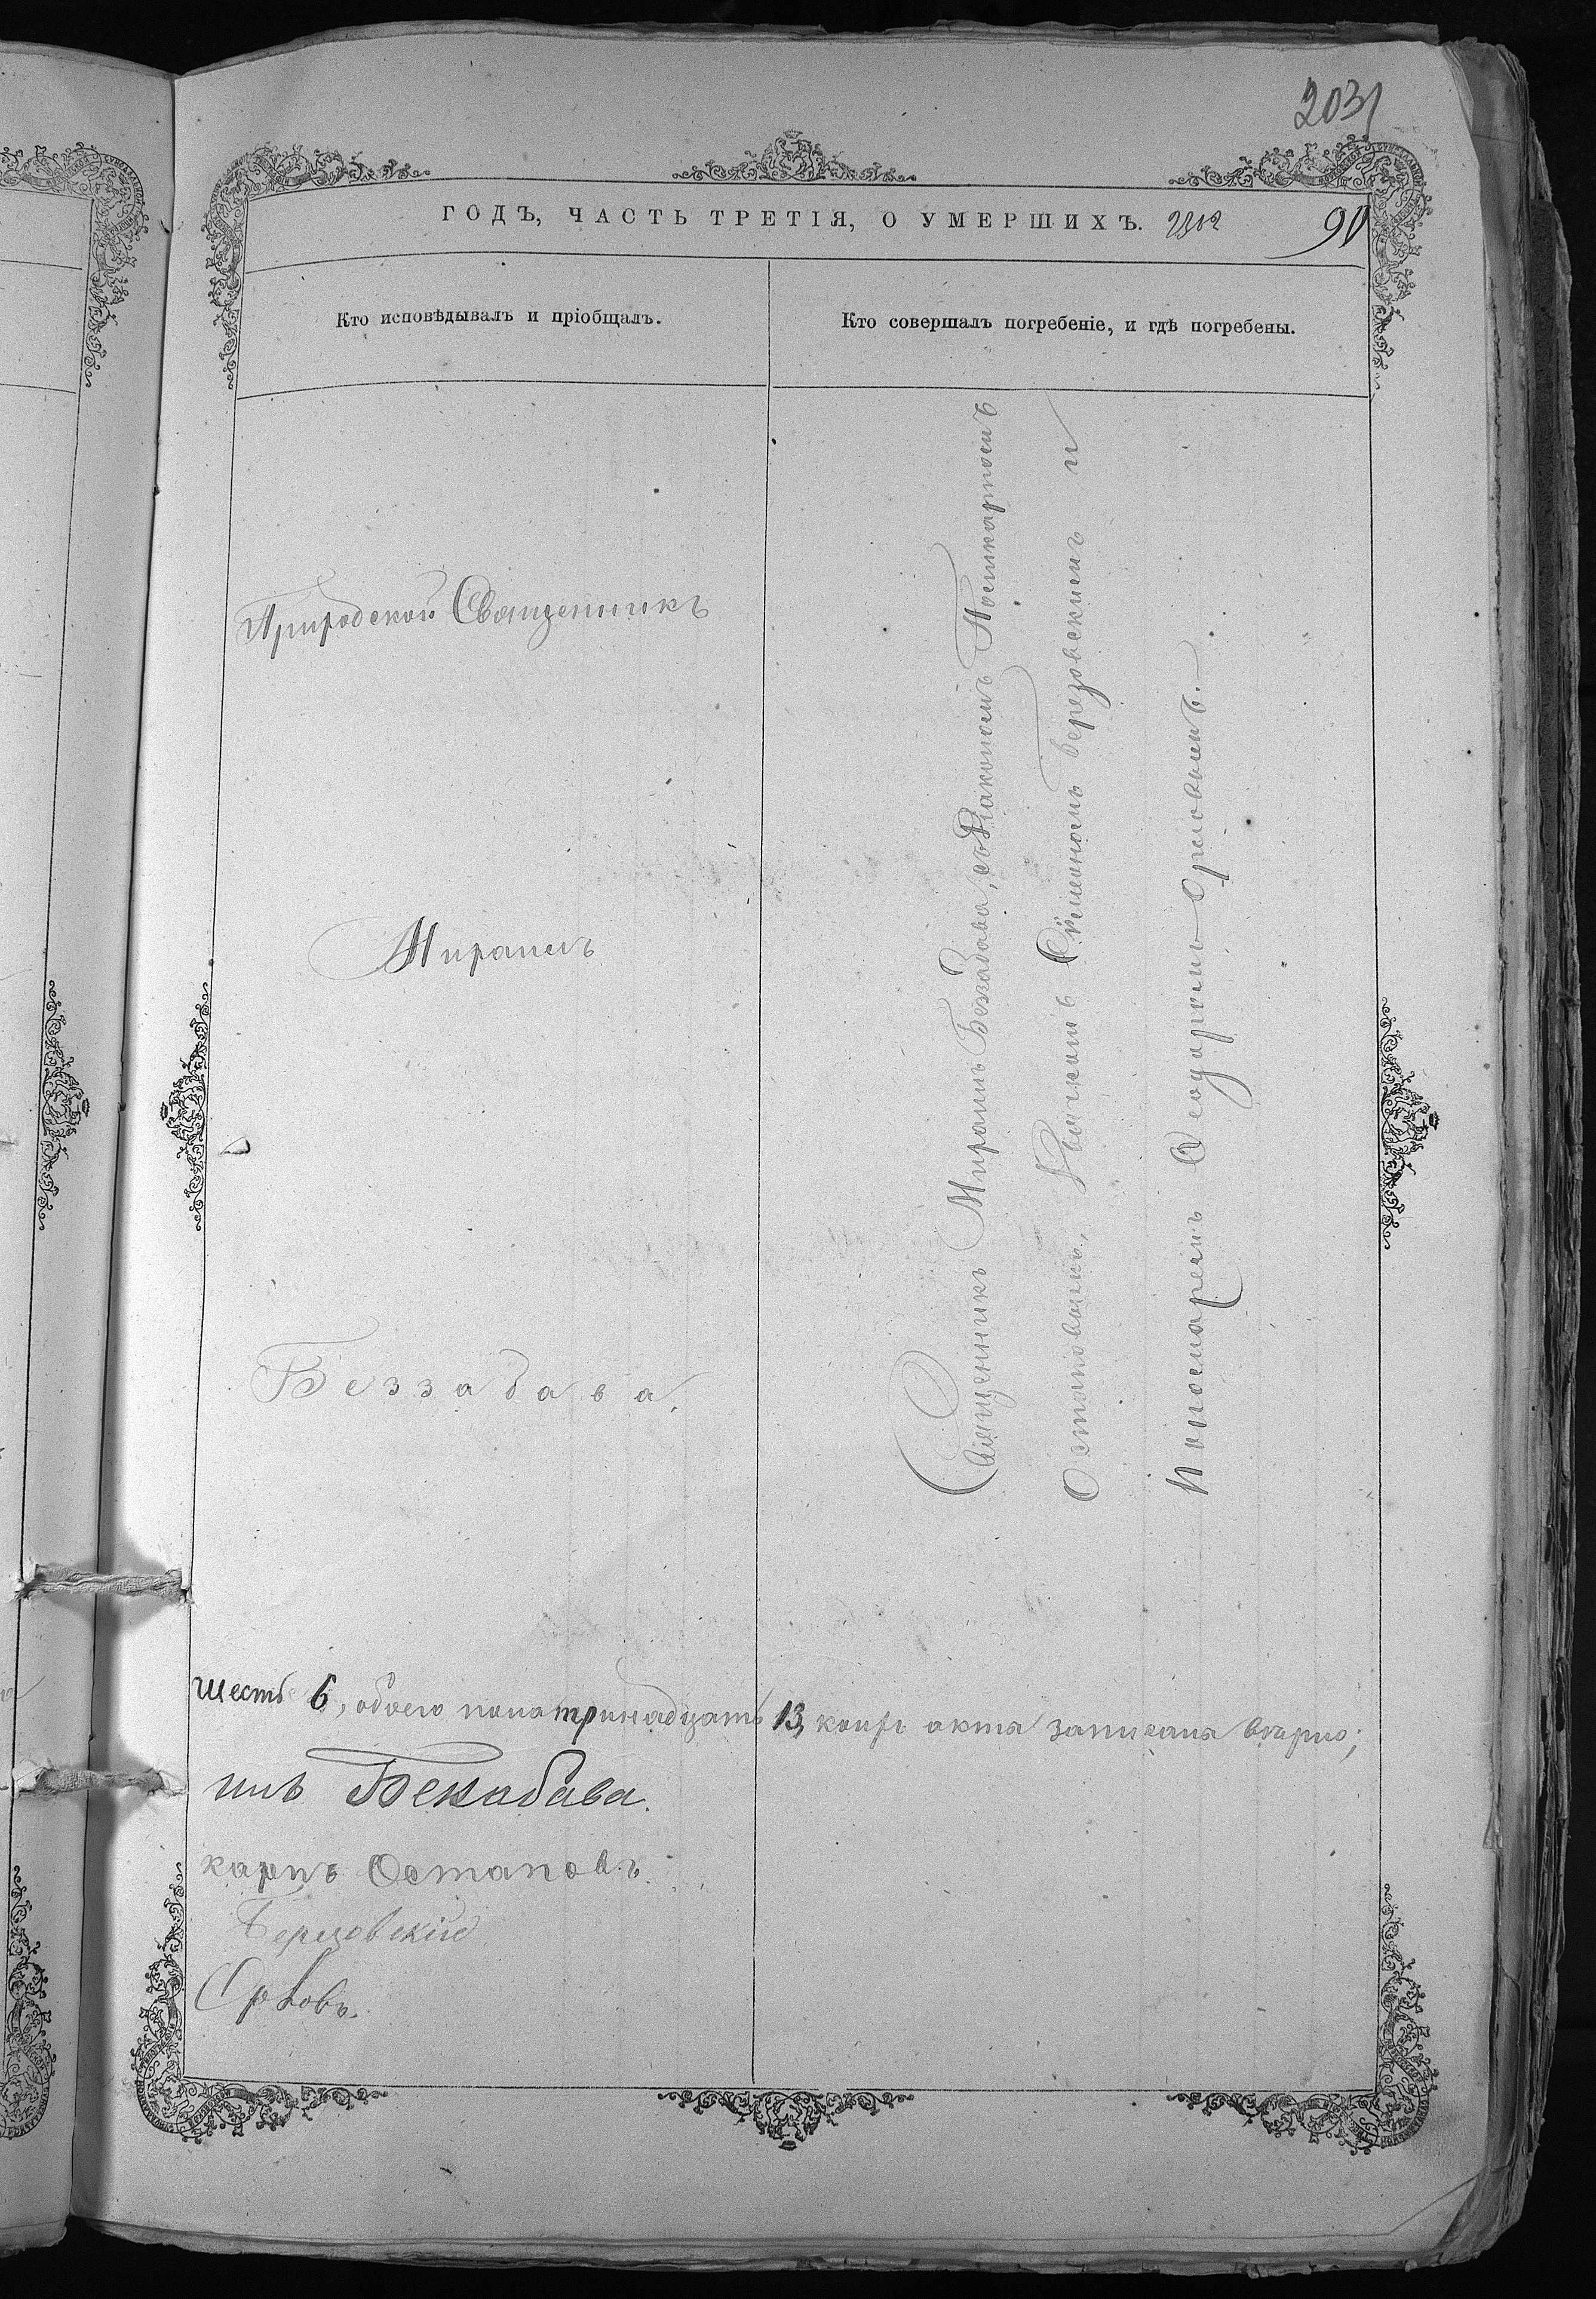 2031
ГОДЪ, ЧАСТЬ ТРЕТІЯ, О УМЕРШИХЪ.
90
Кто исповѣдывалъ и пріобщалъ.
Кто совершалъ погребеніе, и гдѣ погребены.
Священникъ
Беззабава.
Священникъ Беззабава, съ Діакономъ Поликарпомъ
Остаповымъ, Дьячкомъ Березовскимъ и
Пономаремъ Ѳеодоромъ Орловымъ.
шесть 6, обоего пола тринадцать 13, коихъ акта записана вѣрно;
карпъ Остаповъ.
Березовскій
Орловъ.